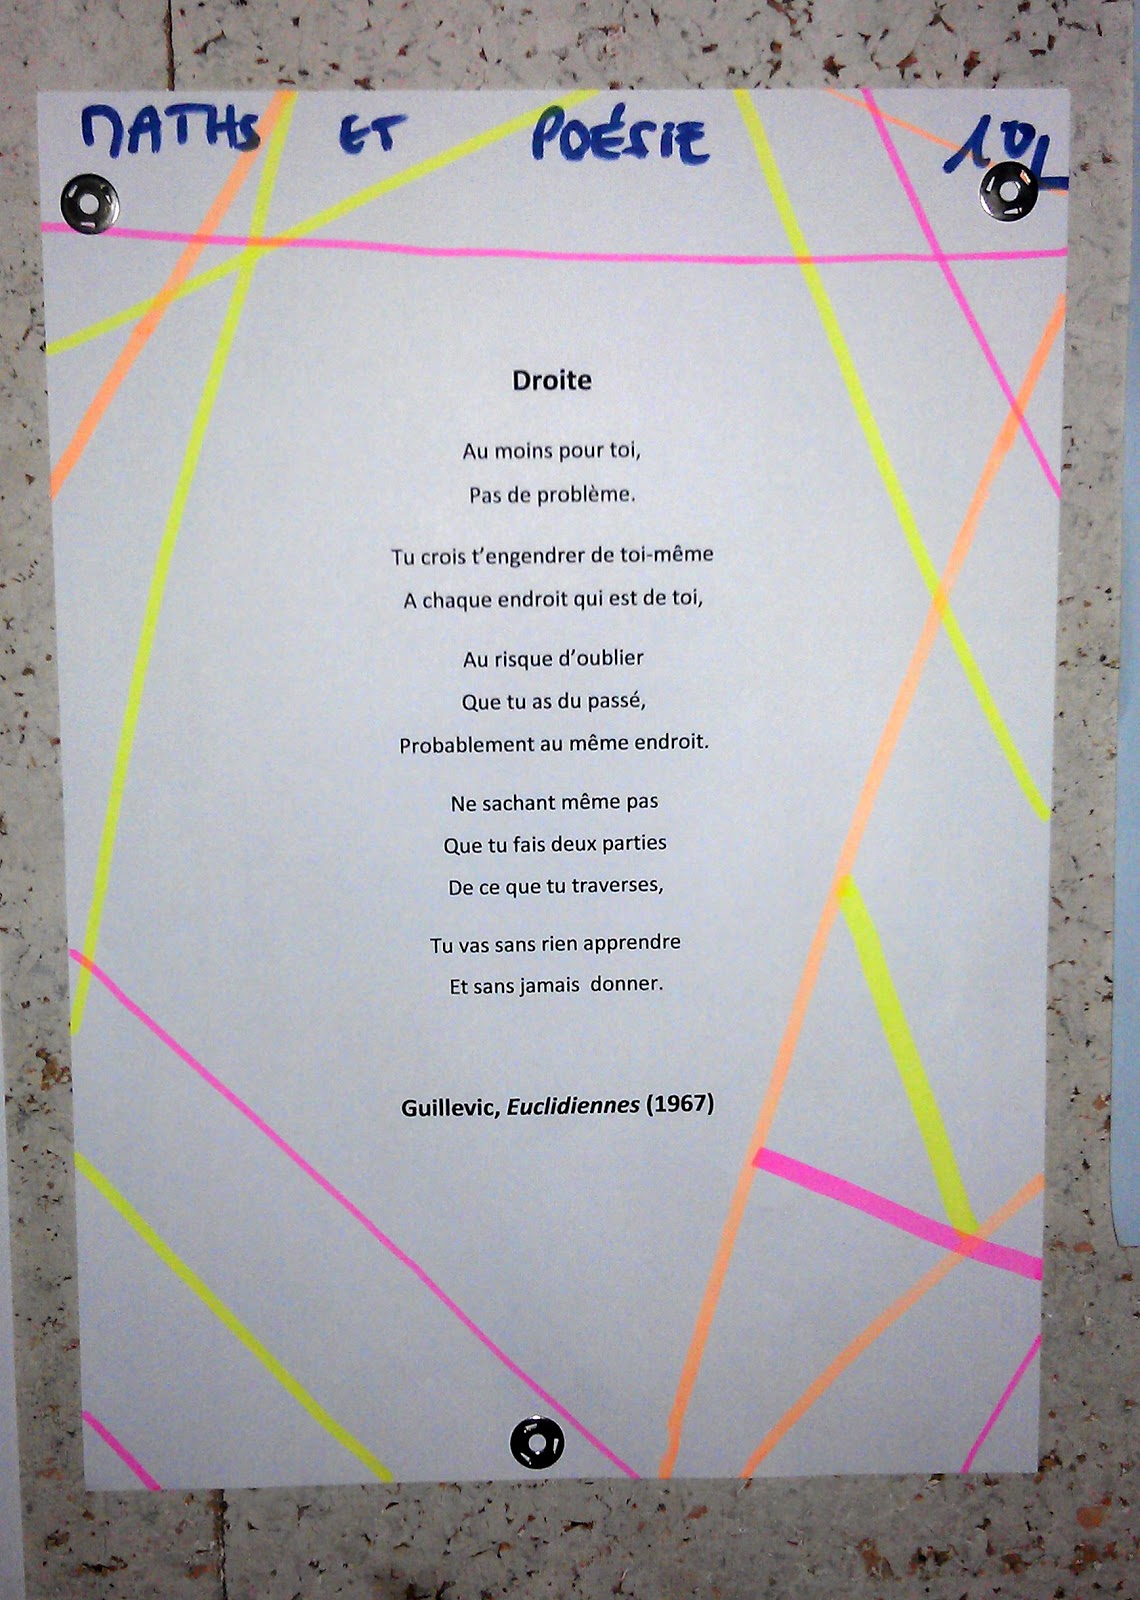 MATHS ET POÉSIE
Droite
Au moins pour toi,
Pas de problème.
Tu crois t’engendrer de toi-même
A chaque endroit qui est de toi,
Au risque d’oublier
Que tu as du passé,
Probablement au même endroit.
Ne sachant même pas
Que tu fais deux parties
De ce que tu traverses,
Tu vas sans rien apprendre
Et sans jamais donner.
Guillevic, Euclidiennes (1967)